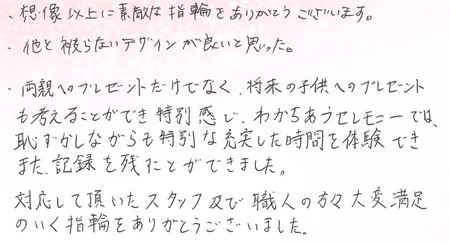 ・想像以上に素敵な指輪をありがとうございます。
・他と被らないデザインが良いと思った。
・両親へのプレゼントだけでなく、将来の子供へのプレゼント
も考えることができ特別感で、わかちあうセレモニーでは、
恥ずかしながらも特別な充実した時間を体験でき
また、記録を残すことができました。
・対応して頂いたスタッフ及び職人の方々大変満足
のいく指輪をありがとうございました。